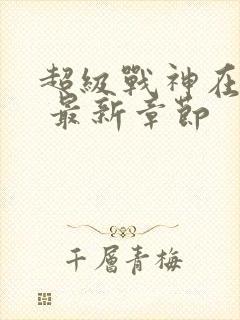 超級戰神在
最新章節
千層青梅